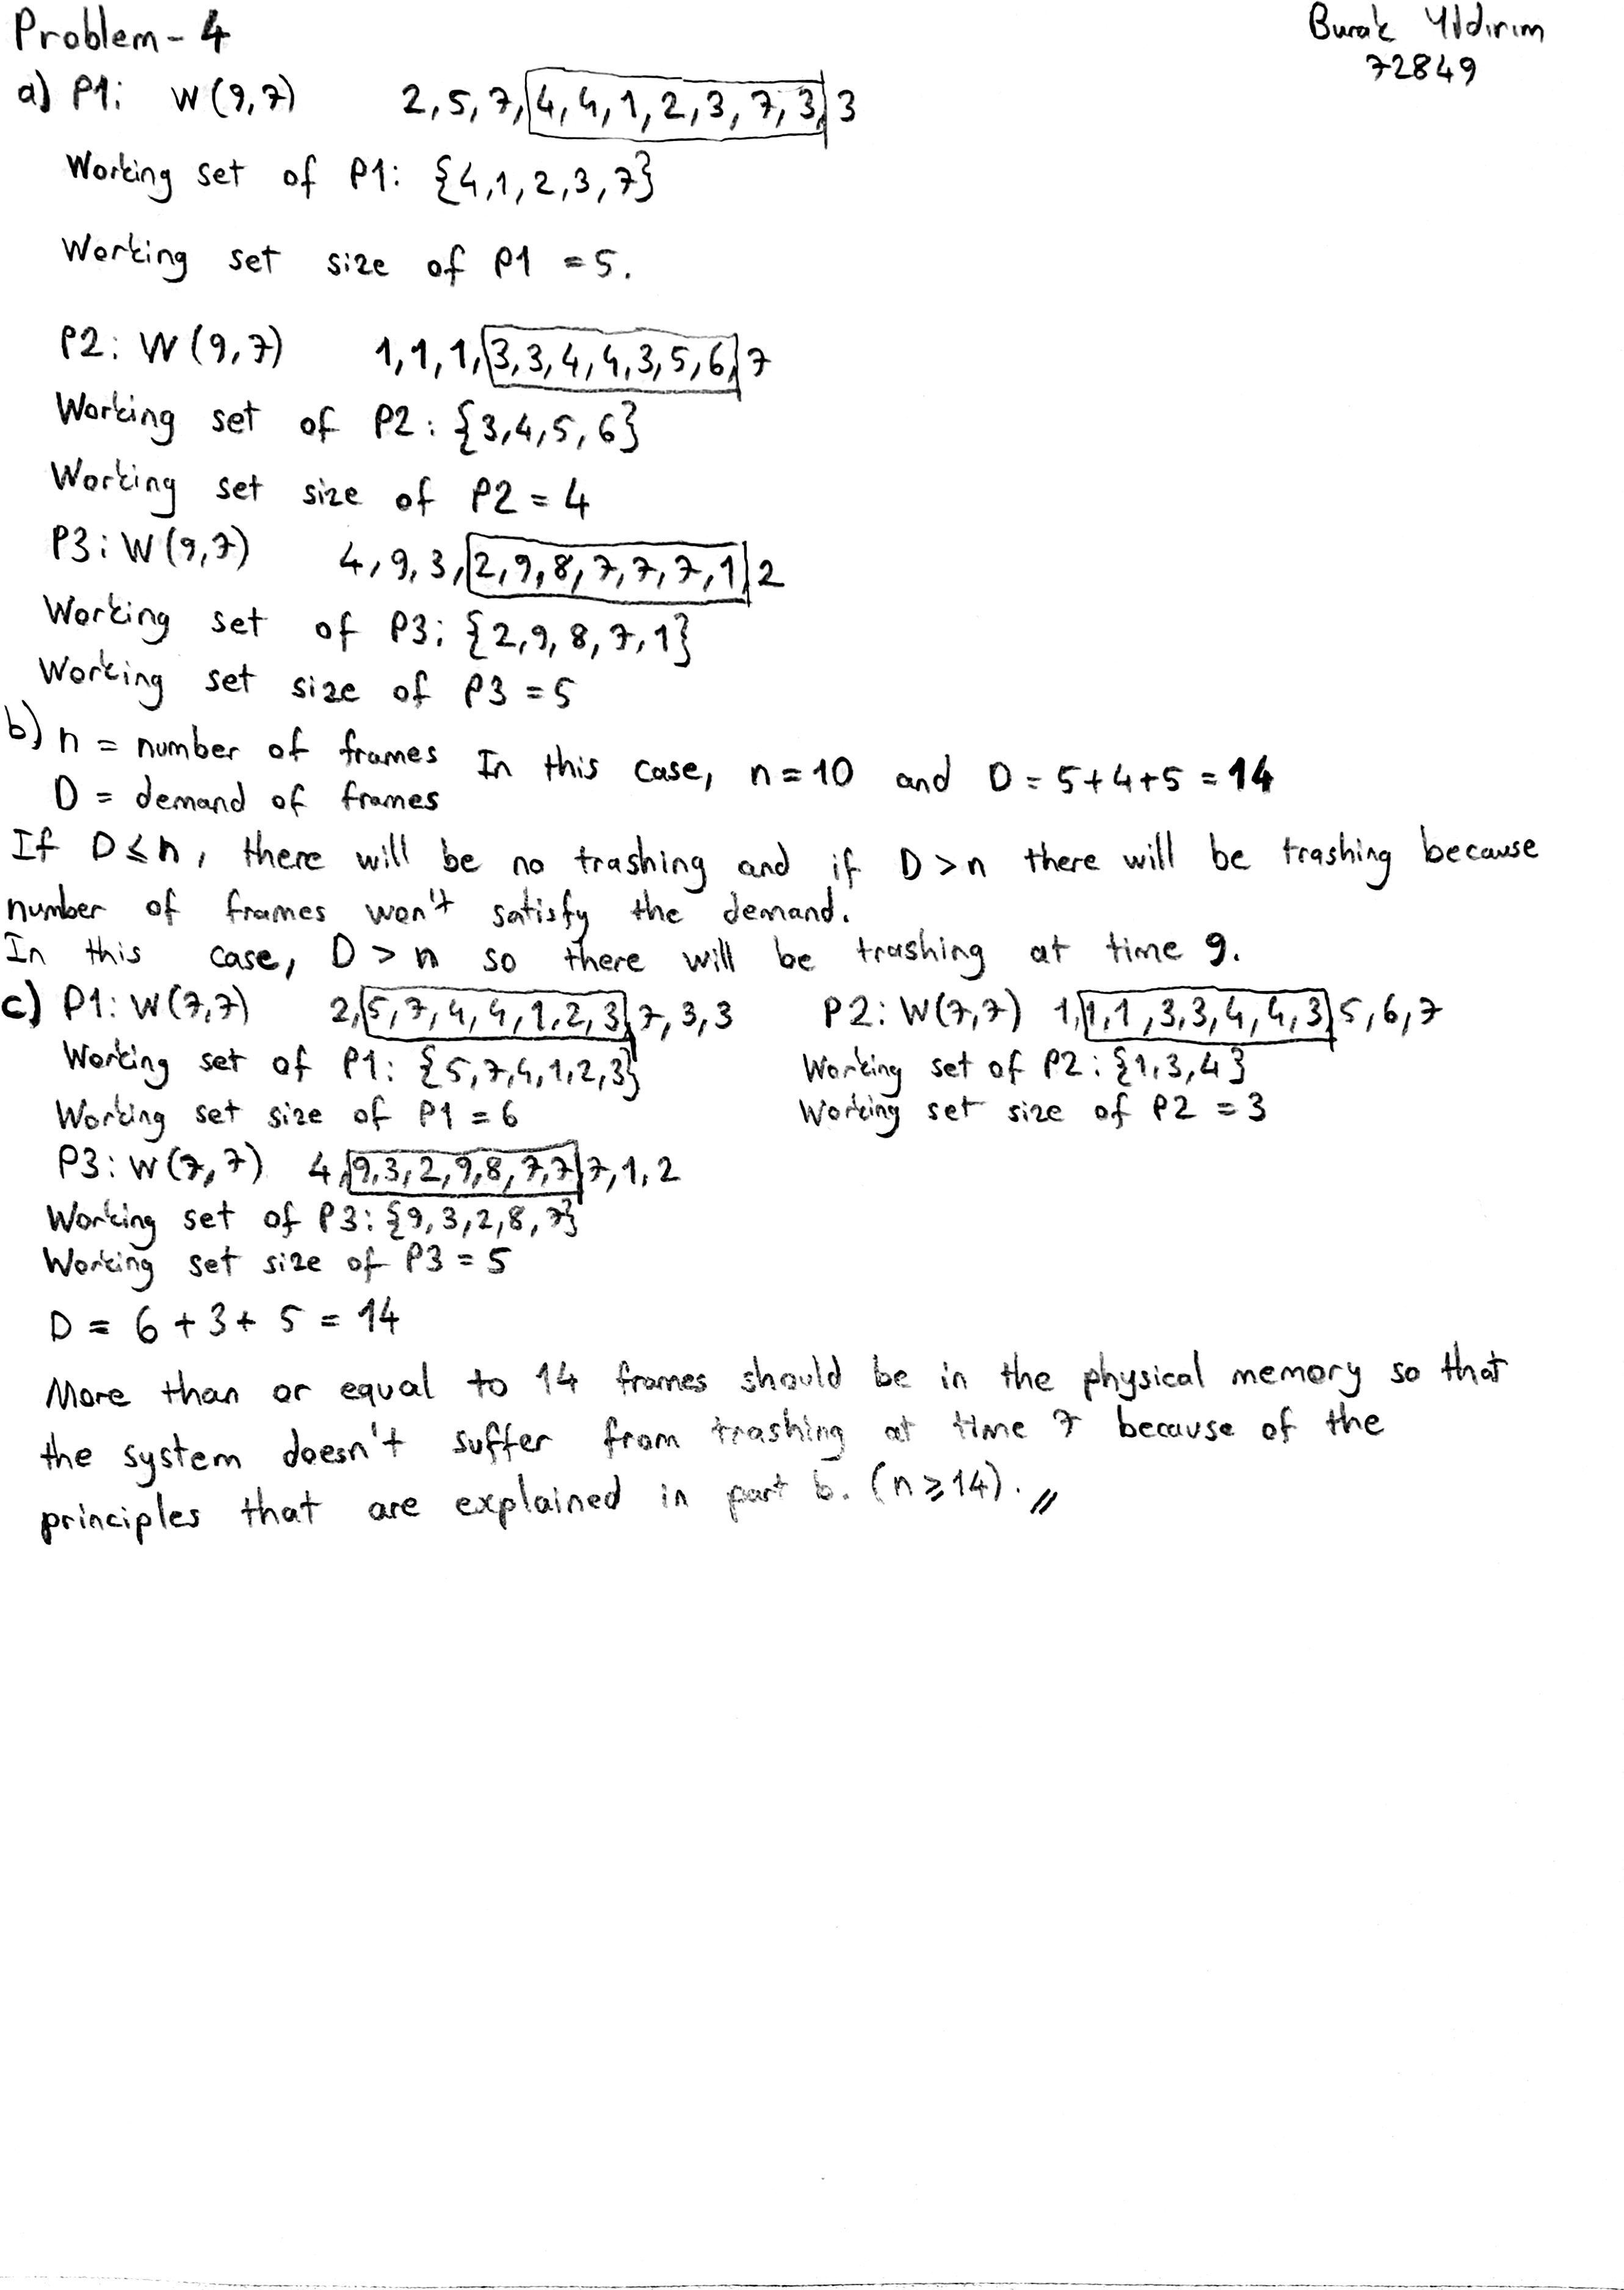 Problem - 4
Burak Yıldırım
72849
a) P1: W(9,7) 2,5,7,4,4,1,2,3,7,3,3
Working set of P1: {4,1,2,3,7}
Working set size of P1 = 5.
P2: W(9,7) 1,1,1,3,3,4,4,3,5,6,7
Working set of P2: {3,4,5,6}
Working set size of P2 = 4
P3: W(9,7) 4,9,3,2,9,8,7,7,7,1,2
Working set of P3: {2,9,8,7,1}
Working set size of P3 = 5
b) n = number of frames
D = demand of frames
In this case, n = 10 and D = 5+4+5 = 14
If D≤n, there will be no trashing and if D>n there will be trashing because
number of frames won't satisfy the demand.
In this case, D > n so there will be trashing at time 9.
c) P1: W(7,7) 2,5,7,4,4,1,2,3,7,3,3
Working set of P1: {5,7,4,1,2,3}
Working set size of P1 = 6
P2: W(7,7) 1,1,1,3,3,4,4,3,5,6,7
Working set of P2: {1,3,4}
Working set size of P2 = 3
P3: W(7,7) 4,9,3,2,9,8,7,7,7,1,2
Working set of P3: {9,3,2,8,7}
Working set size of P3 = 5
D = 6 + 3 + 5 = 14
More than or equal to 14 frames should be in the physical memory so that
the system doesn't suffer from trashing at time 7 because of the
principles that are explained in part b. (n≥14). //